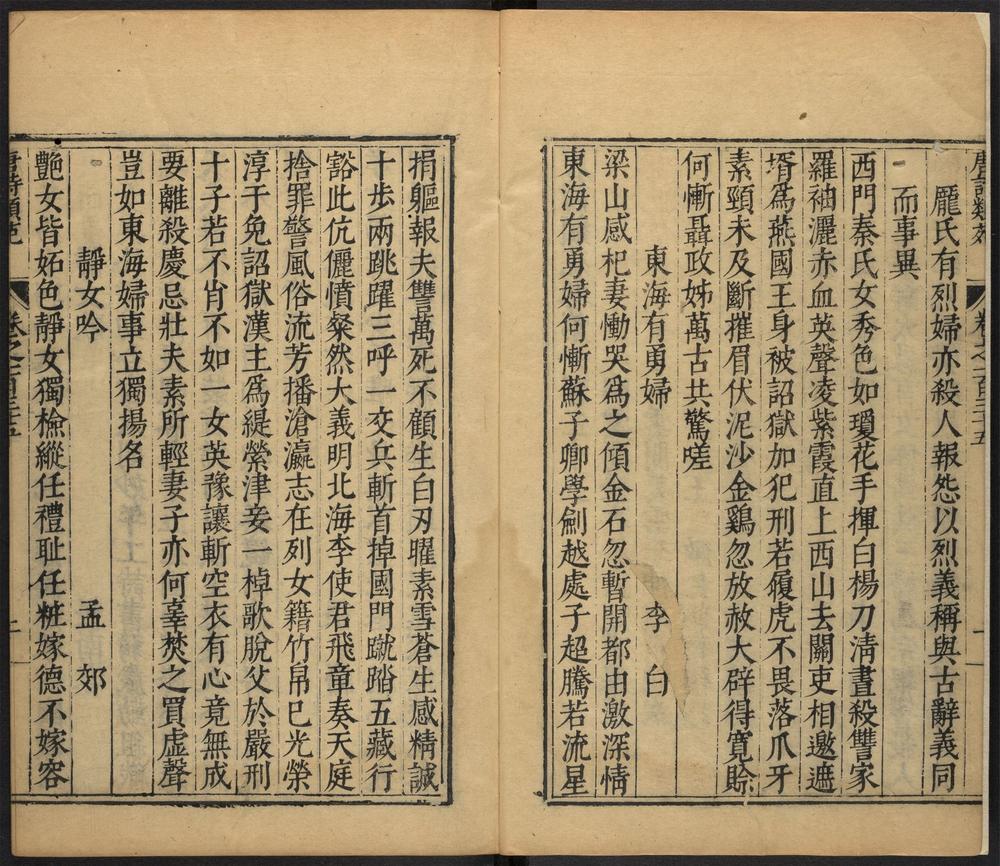 龐氏有烈婦亦殺人報怨以烈義稱與古辭義同
而事異
西門秦氏女秀色如瓊花手揮白楊刀清晝殺讐家
羅袖灑赤血英聲凌紫霞直上西山去關吏相邀遮
壻爲燕國王身被詔獄加犯刑若履虎不畏落爪牙
素頸未及斷摧眉伏泥沙金鷄忽放赦大辟得寬賒
何慚聶政姊萬古共驚嗟
東海有勇婦 李白
梁山感杞妻慟哭爲之傾金石忽暫開都由激深情
東海有勇婦何慚蘇子卿學劍越處子超騰若流星
捐軀報夫讐萬死不顧生白刃曜素雪蒼生感精誠
十步兩跳躍三呼一交兵斬首掉國門蹴踏五藏行
豁此伉儷憤粲然大義明北海李使君飛章奏天庭
捨罪警風俗流芳播滄瀛志在列女籍竹帛已光榮
淳于免詔獄漢主爲緹縈津妾一棹歌脫父於嚴刑
十子若不肖不如一女英豫讓斬空衣有心竟無成
要離殺慶忌壯夫素所輕妻子亦何辜焚之買虛聲
豈如東海婦事立獨揚名
靜女吟 孟郊
艶女皆妬色靜女獨檢縱任禮恥任粧嫁德不嫁容